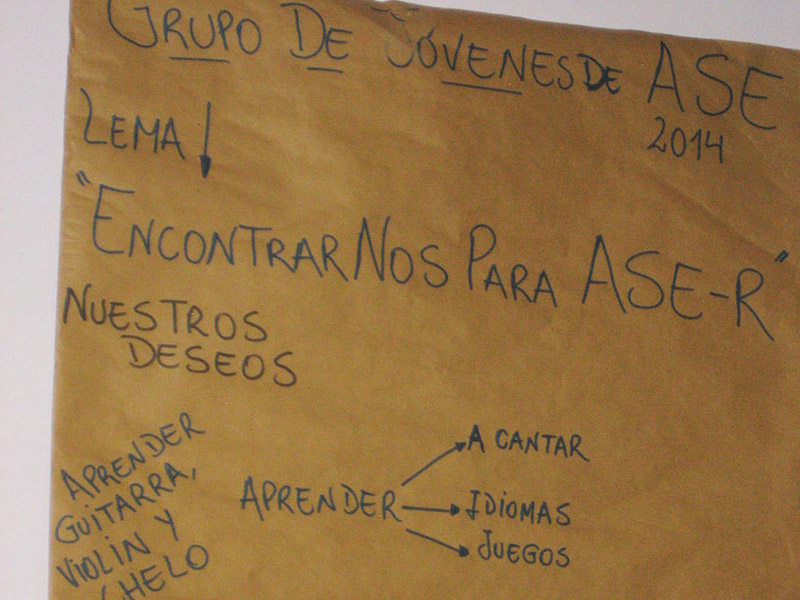 GRUPO DE JÓVENES DE ASE
2014
LEMA
"ENCONTRARNOS PARA ASE-R"
NUESTROS
DESEOS
APRENDER
GUITARRA,
VIOLIN Y
CHELO
APRENDER
A CANTAR
IDIOMAS
JUEGOS